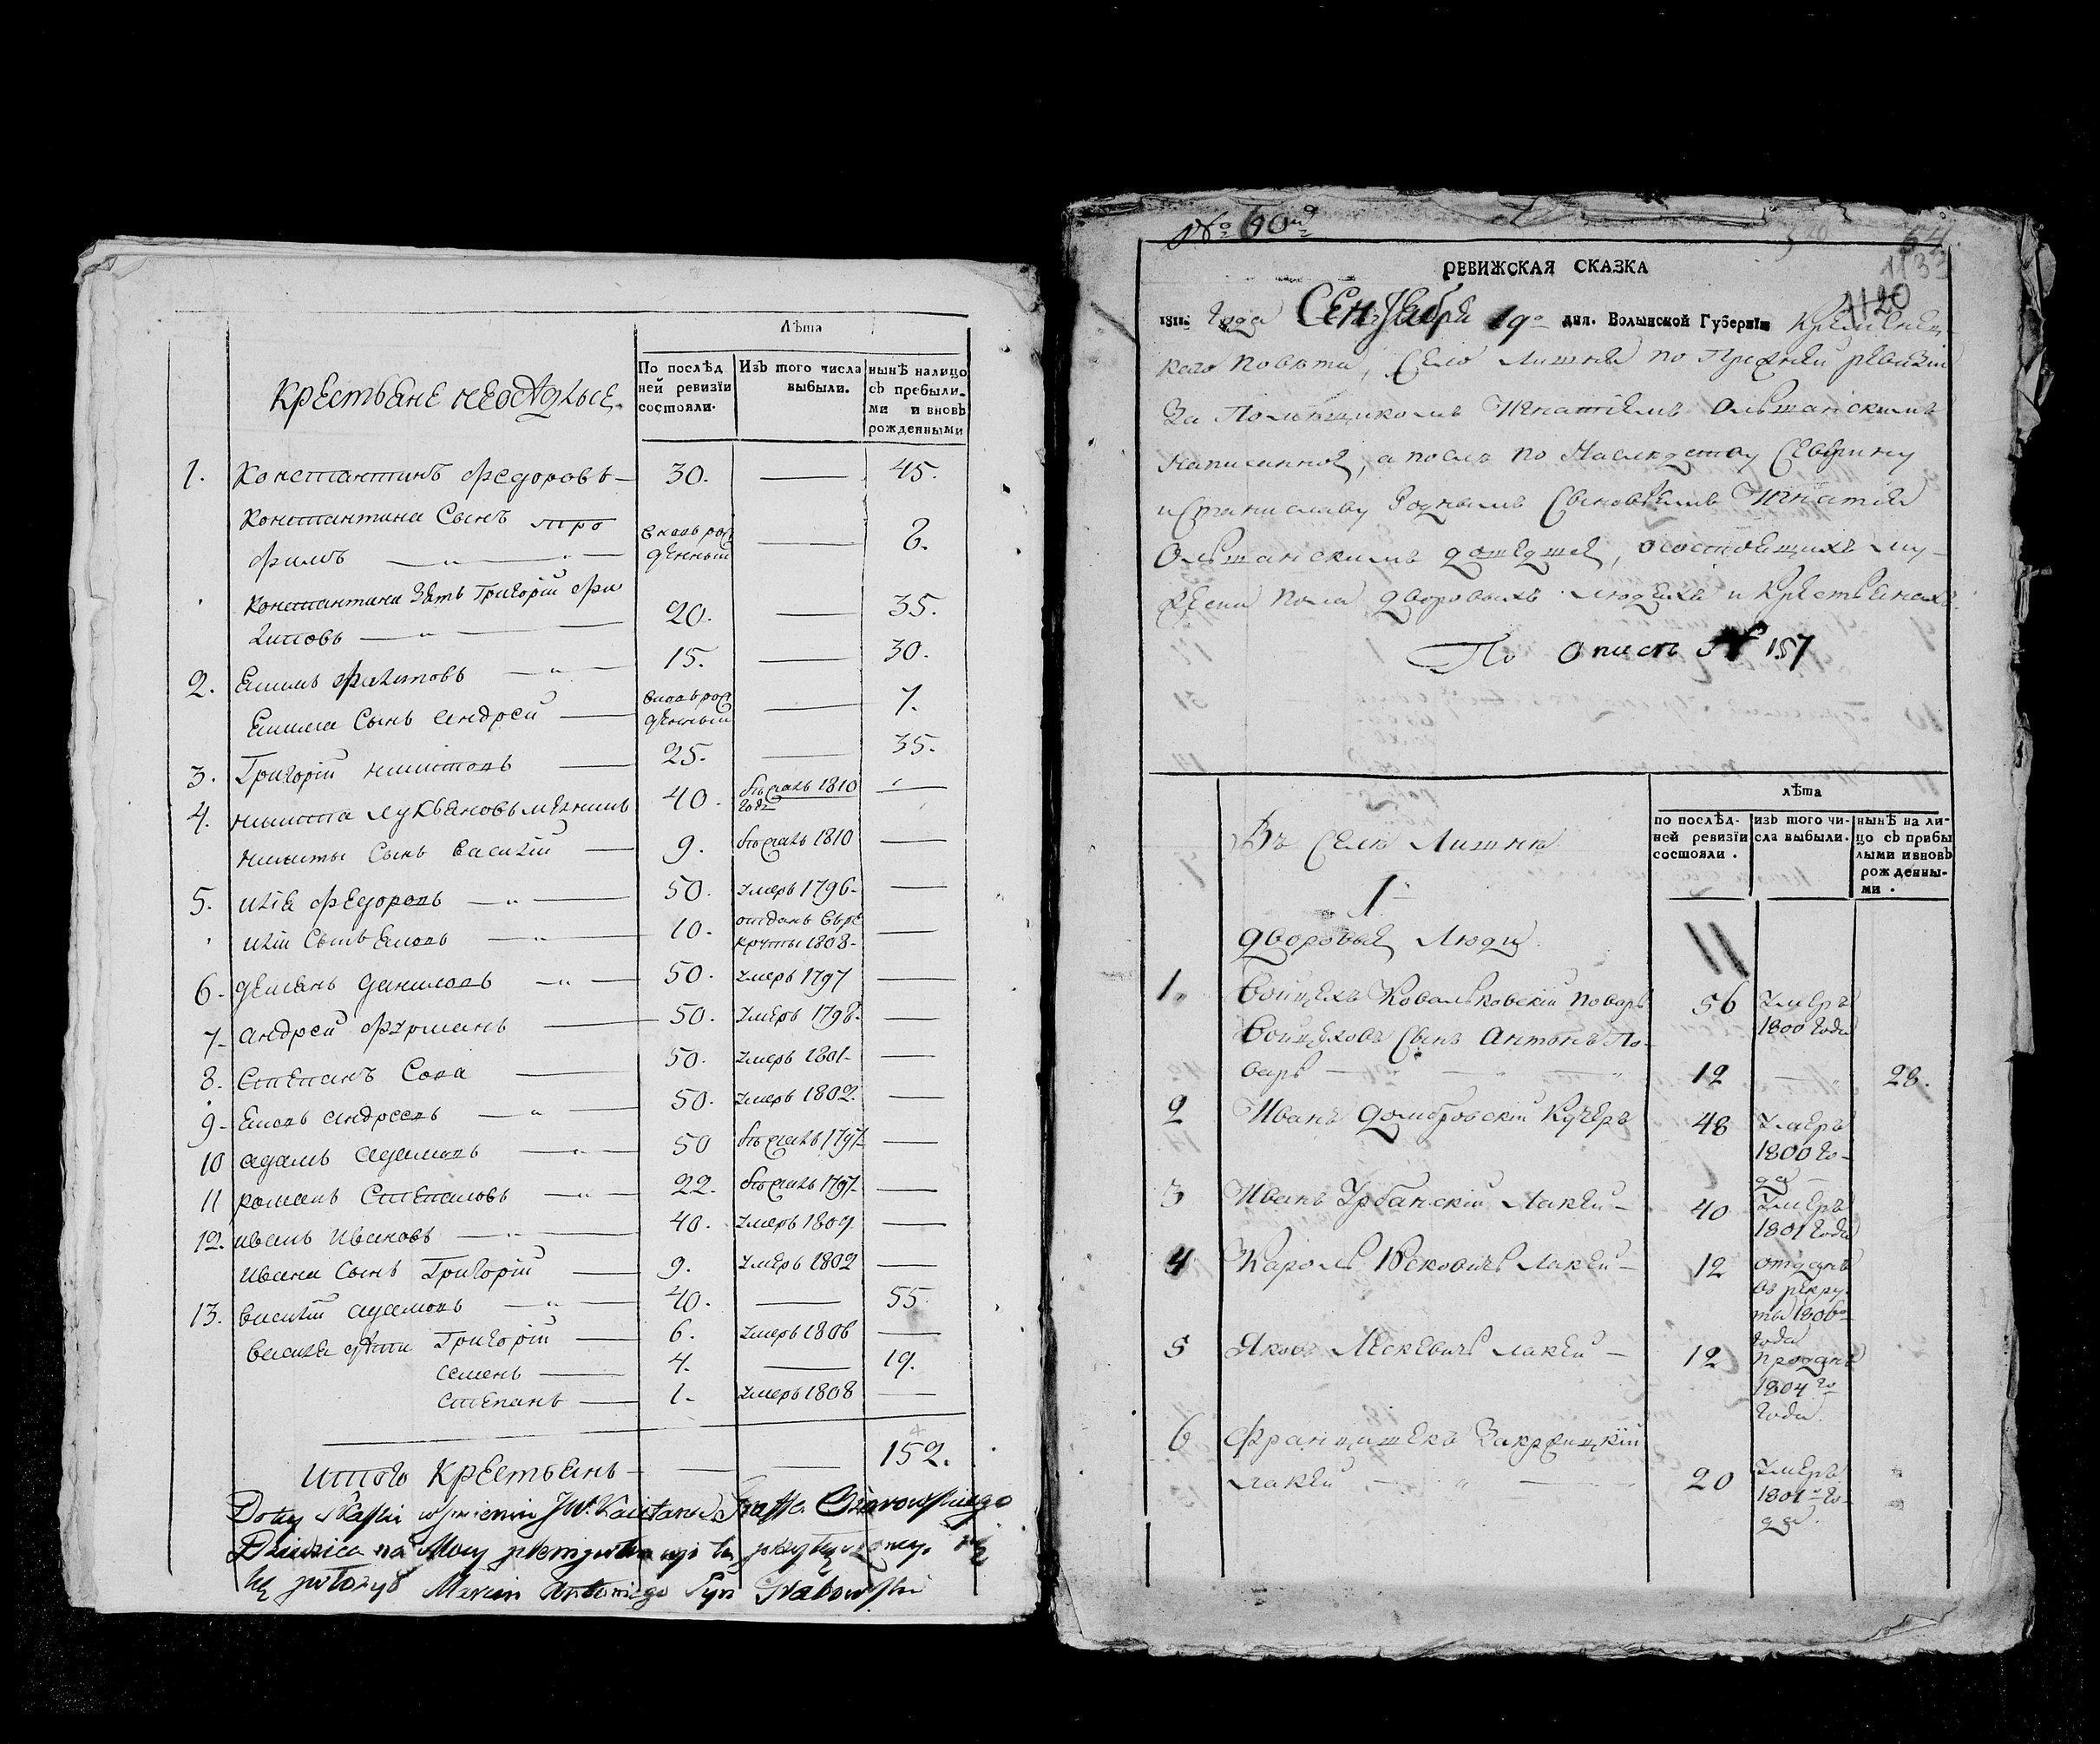 Лѣта
По послѣд
ней ревизїи
состояли.
Изъ того числа
выбыли.
нынѣ налицо
съ пребылы-
ми и вновь
рожденными
Крестьяне
1. Константинъ Федоровъ — 30. — 45.
Константина Сынъ Тро
фимъ — вновь рож
денный — 8.
Константина Зять Григорій Фи
липовъ — 20. — 35.
2. Филиповъ — 15. — 30.
Сынъ Андрей — вновь рож
денный — 7.
3. Григорій — 25. — 35.
4. Никита Лукьяновъ — 40. бѣжалъ 1810
году —
Никиты Сынъ Василій — 9. бѣжалъ 1810 —
5. Илія Федоровъ — 50. умеръ 1796 —
Иліи Сынъ — 10. отданъ въ ре
круты 1808 —
6. Демянъ Даниловъ — 50. умеръ 1797 —
7. Андрей Фурманъ — 50. умеръ 1798 —
8. Степанъ Сова — 50. умеръ 1801 —
9. Андреевъ — 50. умеръ 1802 —
10 Адамъ Адамовъ — 50 бѣжалъ 1797 —
11 Романъ Степановъ — 22. бѣжалъ 1797 —
12. Иванъ Ивановъ — 40. умеръ 1809 —
Ивана Сынъ Григорій — 9. умеръ 1802 —
13. Василій Адамовъ — 40. — 55.
Василія дѣти Григорій — 6. умеръ 1806 —
Семенъ — 4. — 19.
Степанъ — 1. умеръ 1808 —
Итого Крестьянъ — — — 152.
Marcin Antoniego Syn Grabowski
№ 60й
1120
РЕВИЖСКАЯ СКАЗКА
1811. Года Сентября 19го дня. Волынской Губернїи Кременец
каго Повѣта, Село Лишня по Прежней ревизіи
За Помѣщикомъ Игнатіемъ Ольшанскимъ
Написанной, а послѣ по Наслѣдству Северину
и Станиславу Роднымъ Сыновьямъ Игнатія
Ольшанскимъ дошедшей, о состоящихъ му-
жеска пола дворовыхъ людяхъ и Крестьянахъ.
По описи № 157
лѣта
по послѣд-
ней ревизїи
состояли.
изъ того чи-
сла выбыли.
нынѣ на ли-
цо съ прибы
лыми ивновь
рожденны-
ми.
Въ Селѣ Лишнѣ
1
Дворовые Люди
1. Войцехъ Ковальковскій поваръ 56 Умеръ
1800 года
Войцеховъ Сынъ Антонъ По-
варъ — 12 — 28.
2 Иванъ Домбровскій Кучеръ 48 Умеръ
1800 го-
да
3 Иванъ Урбанскій Лакей — 40 Умеръ
1801 года
4 Кароль Лакей — 12 отданъ
въ рекру
ты 1806
года
5 Яковъ Лескевичъ лакей — 12 проданъ
1804го
года.
6 Францишекъ Закржицкій
лакей — 20 Умеръ
1801 го-
да.